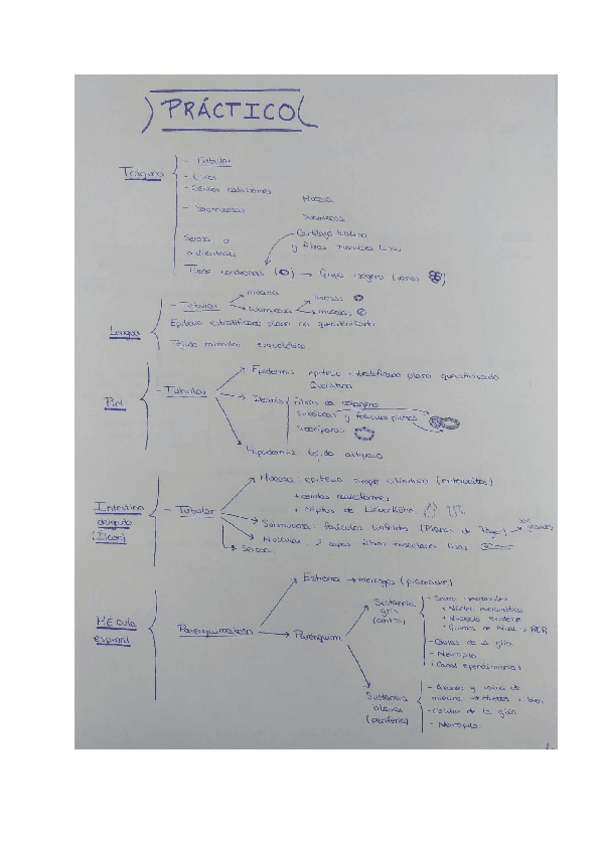 PRÁCTICO
Tráquea
- Tubular
- Cilios
- Células caliciformes
Mucosa
- Submucosa
Submucosa
Serosa o
adventicia
Cartílago hialino
y fibras musculares lisas
Tiene condronas ( ) → Grupo isógeno (varias )
Lengua
- Tubular
mucosa
submucosa
serosas
mucosas
Epitelio estratificado plano no queratinizado
Tejido muscular esquelético
Piel
- Tubular
Epidermis epitelio estratificado plano queratinizado
Dermis
fibras de colágeno
Sebáceas y folículos pilosos
Sudoríparas
Hipodermis tejido adiposo
Intestino
delgado
(Íleon)
- Tubular
Mucosa: epitelio simple cilíndrico (enterocitos)
+ células caliciformes
+ criptas de Lieberkühn
Submucosa: folículos linfoides (Placas de Peyer)
Muscular: 2 capas fibras musculares lisas
Serosa
MÉDula
espinal
Parenquimatoso
Estroma → meninges (piamadre)
Parénquima
Sustancia
gris
(centro)
- Somas neuronales
+ Núcleo
+ Nucleolo evidente
+ Grumos de Nissl → RER
- Células de la glía
- Neuropilo
- Canal ependimario
Sustancia
blanca
(periferia)
- Axones y vaina de
mielina
- Células de la glía
- Neuropilo